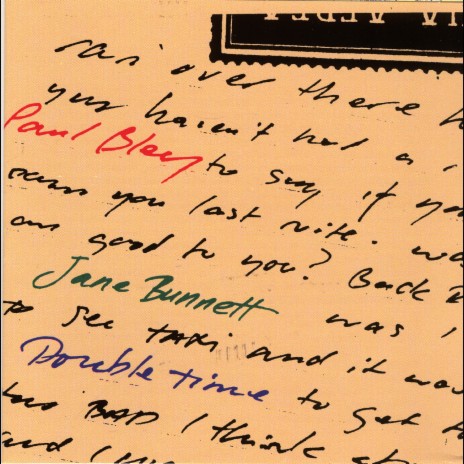 over there
you haven't had a
Paul Bley to say if you
you last nite. was
am good to you? Back
Jane Bunnett was I
to see TAXI and it was
Double time to get
too BAD I think
and I